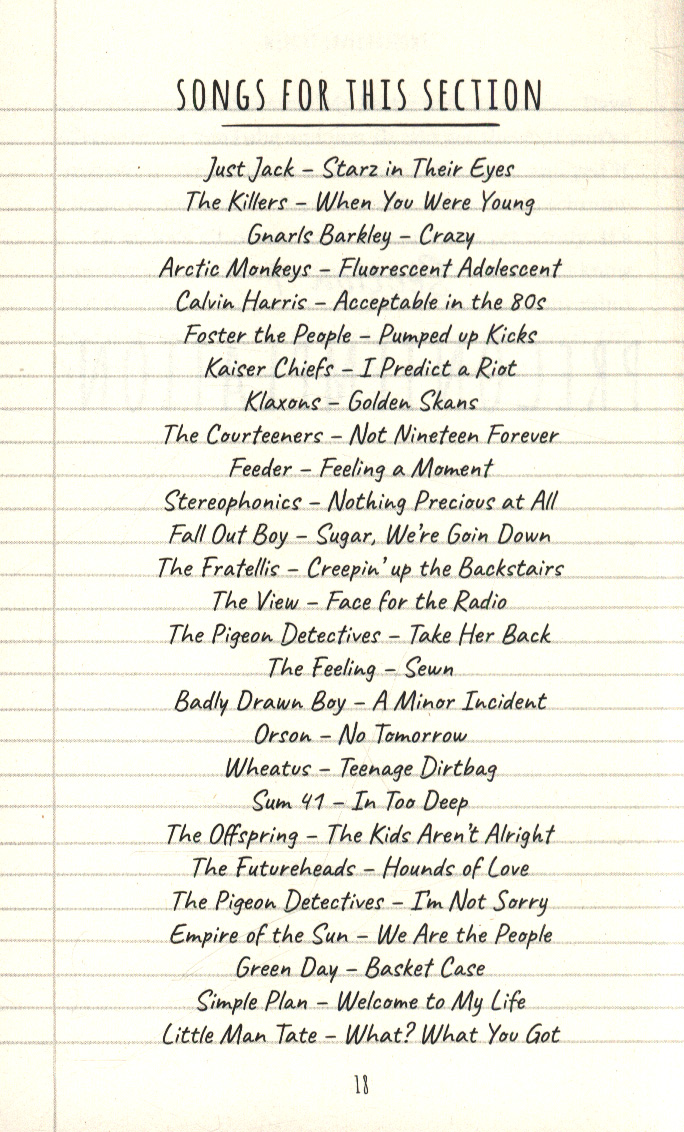 SONGS FOR THIS SECTION
Just Jack – Starz in Their Eyes
The Killers – When You Were Young
Gnarls Barkley – Crazy
Arctic Monkeys – Fluorescent Adolescent
Calvin Harris – Acceptable in the 80s
Foster the People – Pumped up Kicks
Kaiser Chiefs – I Predict a Riot
Klaxons – Golden Skans
The Courteeners – Not Nineteen Forever
Feeder – Feeling a Moment
Stereophonics – Nothing Precious at All
Fall Out Boy – Sugar, We're Goin Down
The Fratellis – Creepin' up the Backstairs
The View – Face for the Radio
The Pigeon Detectives – Take Her Back
The Feeling – Sewn
Badly Drawn Boy – A Minor Incident
Orson – No Tomorrow
Wheatus – Teenage Dirtbag
Sum 41 – In Too Deep
The Offspring – The Kids Aren't Alright
The Futureheads – Hounds of Love
The Pigeon Detectives – I'm Not Sorry
Empire of the Sun – We Are the People
Green Day – Basket Case
Simple Plan – Welcome to My Life
Little Man Tate – What? What You Got
18